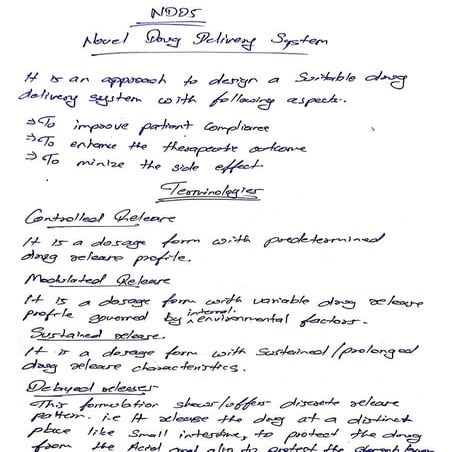 NDDS
Novel Drug Delivery System
It is an approach to design a Suitable drug
delivery system with following aspects.
⇒ To improve patient Compliance
⇒ To enhance the therapeutic outcome
⇒ To minize the side effect.
Terminologies
Controlled Release
It is a dosage form with predetermined
drug release profile.
Modulated Release
It is a dosage form with variable drug release
profile governed by internal environmental factors.
Sustained release.
It is a dosage form with Sustained/prolonged
drug release characteristics.
Delayed releases
This formulation shows/offers discrete release
pattern. i.e It release the drug at a distinct
place like Small intestine, to protect the drug
from the Acid and also to protect the